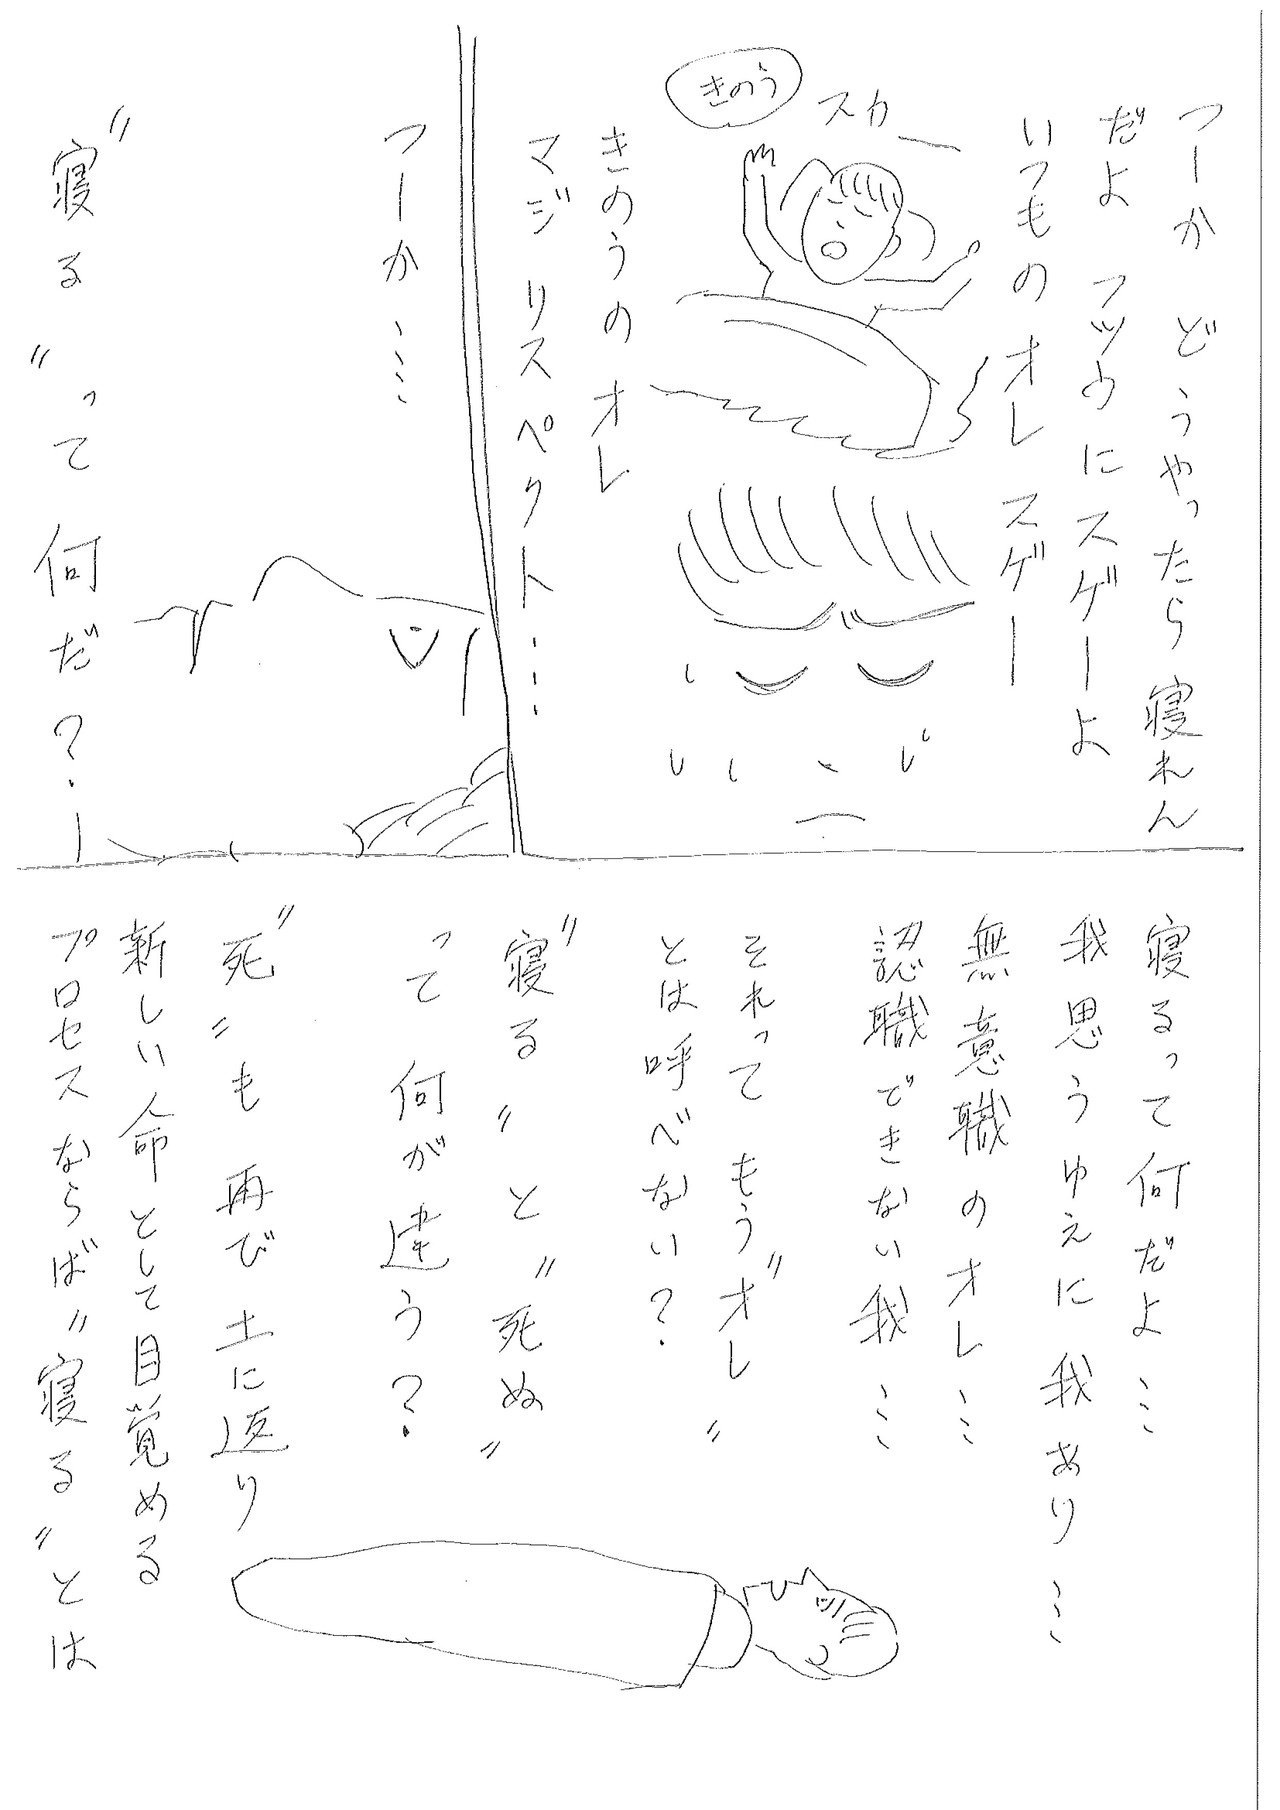 つーか どうやったら寝れん
だよ フツウにスゲーよ
いつものオレ スゲー
スカー
きのう
きのうのオレ
マジ リスペクト…
つーか…
"寝る"って何だ?ー
寝るって何だよ…
我思うゆえに我あり…
無意職のオレ…
認職できない我…
それって もう"オレ"
とは呼べない?
"寝る"と"死ぬ"
って 何が違う?
"死"も 再び土に返り
新しい命として目覚める
プロセスならば"寝る"とは